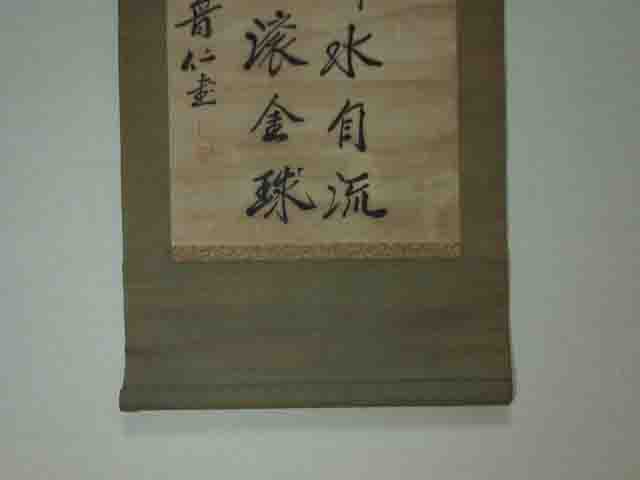 水自流
滚金球
晋仁書